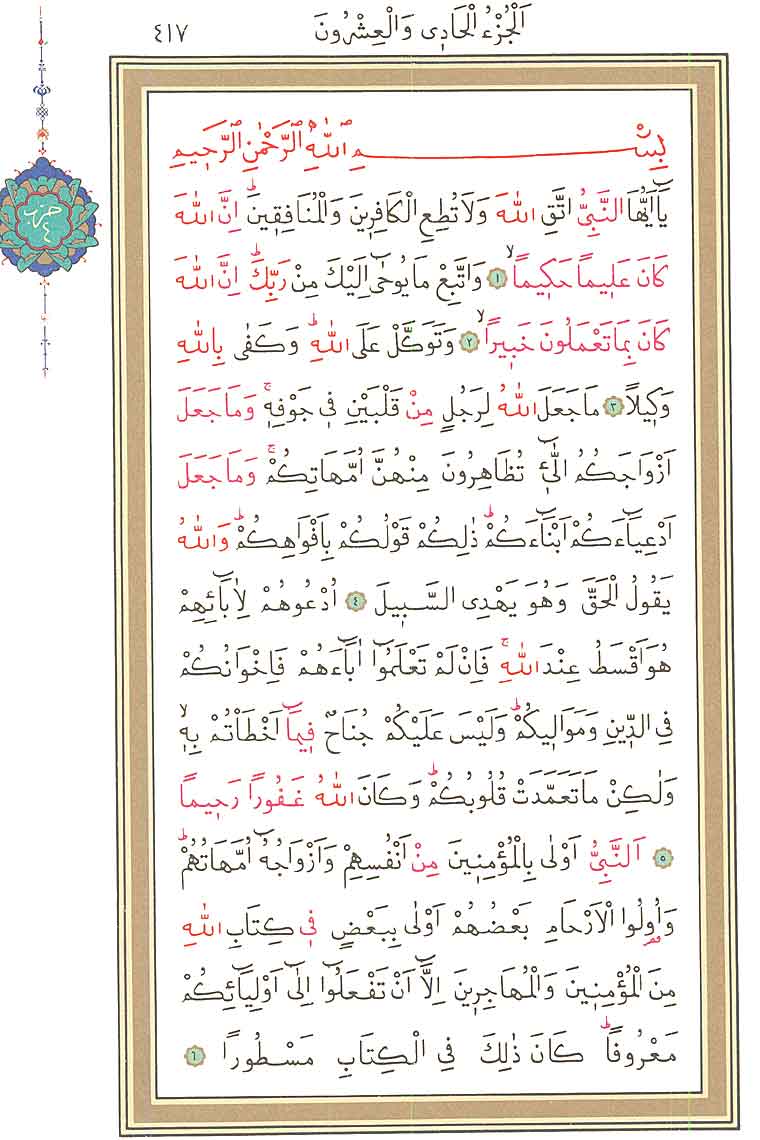 اَلْجُزْءُ الْحَادِى وَالْعِشْرُونَ
٤١٧
حزب
٤
بِسْمِ اللّٰهِ الرَّحْمٰنِ الرَّحِيمِ
يَٓا اَيُّهَا النَّبِىُّ اتَّقِ اللّٰهَ وَلَا تُطِعِ الْكَافِرِينَ وَالْمُنَافِقِينَۜ اِنَّ اللّٰهَ
كَانَ عَلِيماً حَكِيماًۙ ١ وَاتَّبِعْ مَا يُوحٰٓى اِلَيْكَ مِنْ رَبِّكَۜ اِنَّ اللّٰهَ
كَانَ بِمَا تَعْمَلُونَ خَبِيراًۙ ٢ وَتَوَكَّلْ عَلَى اللّٰهِۜ وَكَفٰى بِاللّٰهِ
وَكِيلاً ٣ مَا جَعَلَ اللّٰهُ لِرَجُلٍ مِنْ قَلْبَيْنِ فِى جَوْفِهِۚ وَمَا جَعَلَ
اَزْوَاجَكُمُ الّٰٓـِٔى تُظَاهِرُونَ مِنْهُنَّ اُمَّهَاتِكُمْۚ وَمَا جَعَلَ
اَدْعِيَٓاءَكُمْ اَبْنَٓاءَكُمْۜ ذٰلِكُمْ قَوْلُكُمْ بِاَفْوَاهِكُمْۜ وَاللّٰهُ
يَقُولُ الْحَقَّ وَهُوَ يَهْدِى السَّبِيلَ ٤ اُدْعُوهُمْ لِاٰبَٓائِهِمْ
هُوَ اَقْسَطُ عِنْدَ اللّٰهِۚ فَاِنْ لَمْ تَعْلَمُٓوا اٰبَٓاءَهُمْ فَاِخْوَانُكُمْ
فِى الدِّينِ وَمَوَالِيكُمْۜ وَلَيْسَ عَلَيْكُمْ جُنَاحٌ فِيمَٓا اَخْطَأْتُمْ بِهِۙ
وَلٰكِنْ مَا تَعَمَّدَتْ قُلُوبُكُمْۜ وَكَانَ اللّٰهُ غَفُوراً رَحِيماً
٥ اَلنَّبِىُّ اَوْلٰى بِالْمُؤْمِنِينَ مِنْ اَنْفُسِهِمْ وَاَزْوَاجُهُٓ اُمَّهَاتُهُمْۜ
وَاُو۬لُوا الْاَرْحَامِ بَعْضُهُمْ اَوْلٰى بِبَعْضٍ فِى كِتَابِ اللّٰهِ
مِنَ الْمُؤْمِنِينَ وَالْمُهَاجِرِينَ اِلَّٓا اَنْ تَفْعَلُٓوا اِلٰٓى اَوْلِيَٓائِكُمْ
مَعْرُوفاًۜ كَانَ ذٰلِكَ فِى الْكِتَابِ مَسْطُوراً ٦